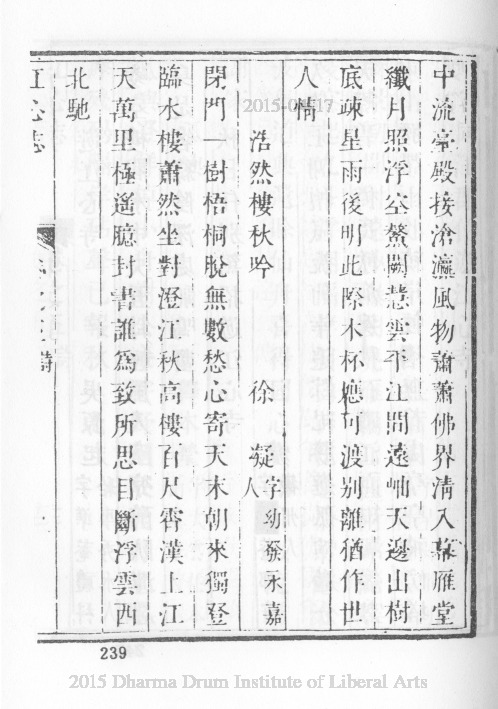 中流臺殿接滄瀛風物蕭蕭佛界凊入幕雁堂
纖月照浮空鰲闕慧雲平江間遠岫天邊出樹
底疎星雨後明此際木杯應可渡别離猶作世
人情
浩然樓秋吟 徐凝字幼發永嘉人
閉門一樹梧桐脫無數愁心寄天末朝來獨登
臨水樓蕭然坐對澄江秋高樓百尺霄漢上江
天萬里極遙臆封書誰為致所思目斷浮雲西
北馳
江心志 詩
239
2015-04-17
2015 Dharma Drum Institute of Liberal Arts